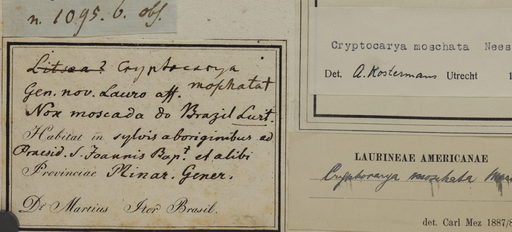 n. 1095. b. obs.
Litsea? Cryptocarya
moschata
Gen. nov. Lauro aff.
Nox moscada do Brazil Lusit.
Habitat in sylvis aboriginibus ad
Praesid. S. Joannis Bapt. et alibi
Provinciae Minar. Gener.
Dr Martius Iter Brasil.
Cryptocarya moschata Nees
Det. A. Kostermans Utrecht
LAURINEAE AMERICANAE
Cryptocarya moschata
det. Carl Mez 1887/8